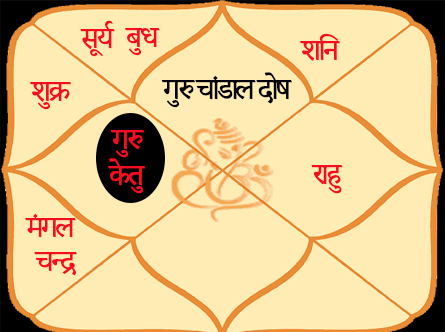 सूर्य बुध
शनि
शुक्र
गुरु चांडाल दोष
गुरु
केतु
राहु
मंगल
चन्द्र